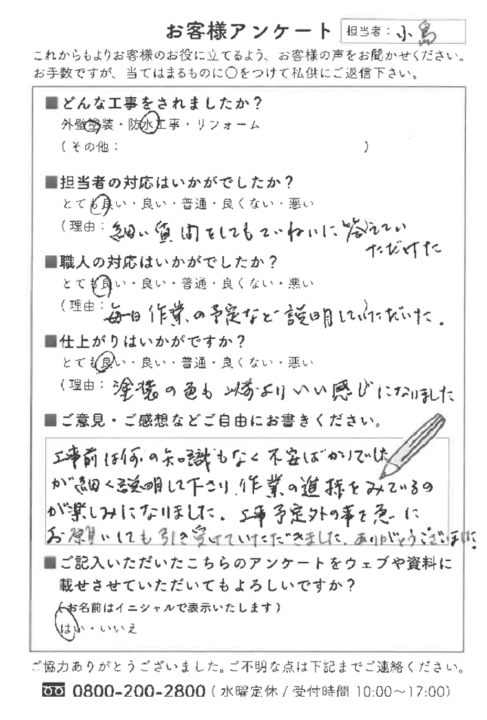 お客様アンケート 担当者: 小島
これからもよりお客様のお役に立てるよう、お客様の声をお聞かせください。
お手数ですが、当てはまるものに○をつけて私供にご返信下さい。
■どんな工事をされましたか？
外壁塗装・防水工事・リフォーム
（その他： ）
■担当者の対応はいかがでしたか？
とても良い・良い・普通・良くない・悪い
（理由： 細い質問をしてもていねいに答えてい
ただけた
■職人の対応はいかがでしたか？
とても良い・良い・普通・良くない・悪い
（理由： 毎日作業の予定など説明していただいた．
■仕上がりはいかがですか？
とても良い・良い・普通・良くない・悪い
（理由： 塗装の色も以前よりいい感じになりました
■ご意見・ご感想などご自由にお書きください。
工事前は何の知識もなく不安ばかりでした
が細く説明して下さり、作業の進様をみているの
が楽しみになりました．工事予定外の事を急に
お願いしても引き受けていただきました．ありがとうございました．
■ご記入いただいたこちらのアンケートをウェブや資料に
載せさせていただいてもよろしいですか？
（お名前はイニシャルで表示いたします）
はい・いいえ
ご協力ありがとうございました。ご不明な点は下記までご連絡ください。
0800-200-2800（水曜定休/受付時間 10:00～17:00）